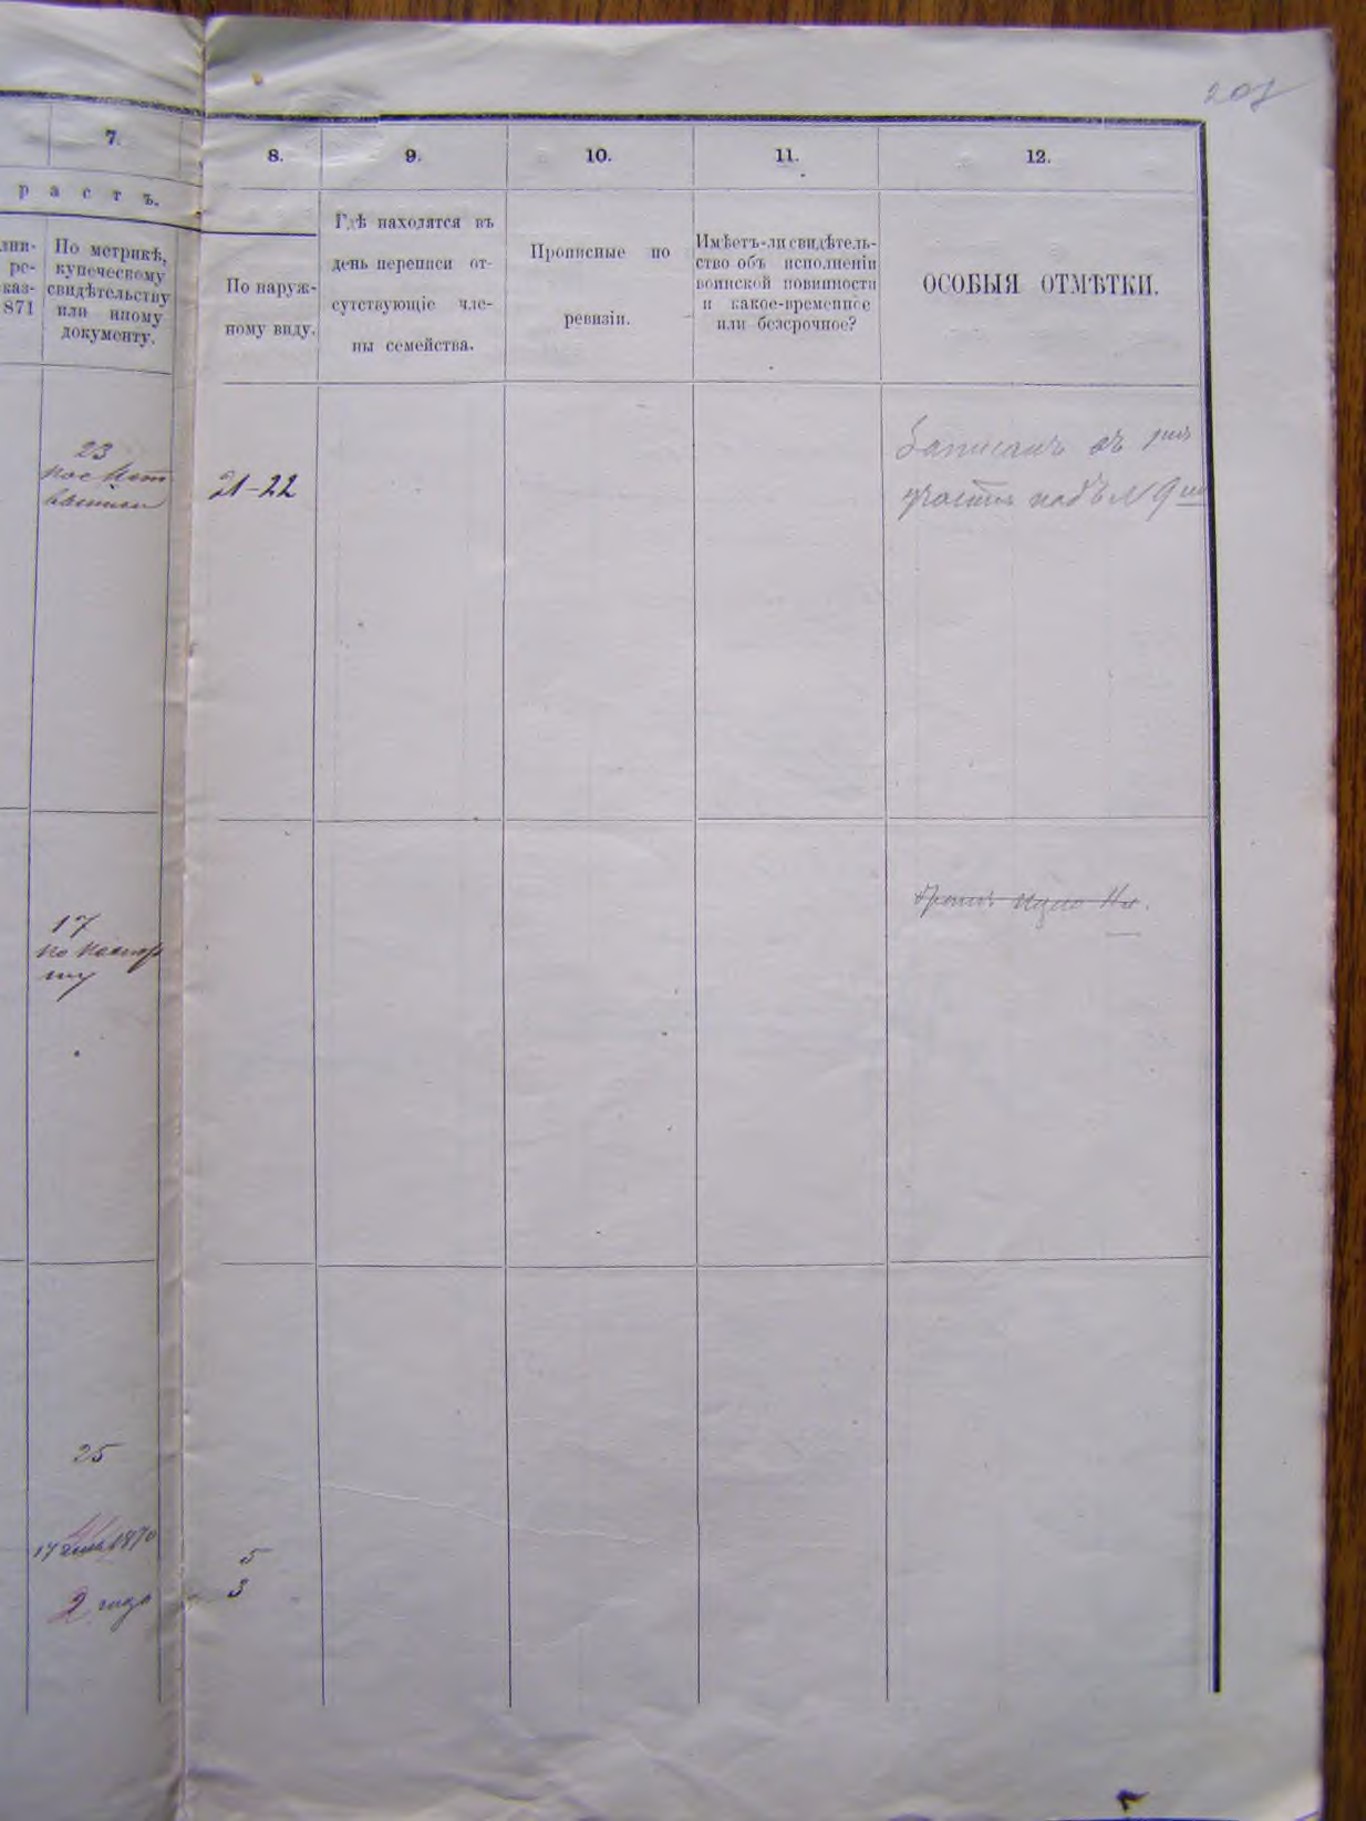 207
7.
8.
9.
10.
11.
12.
р а с т ъ.
871
По метрикѣ,
купеческому
свидѣтельству
или иному
документу.
По наруж-
ному виду.
Гдѣ находятся въ
день переписи от-
сутствующіе чле-
ны семейства.
Прописные по
ревизіи.
Имѣетъ-ли свидѣтель-
ство объ исполненіи
воинской повинности
и какое-временное
или безсрочное?
ОСОБЫЯ ОТМѢТКИ.
23
21-22
Записанъ въ
участкѣ подъ № 9
17
по паспор
ту
25
1870
5
2 года
3